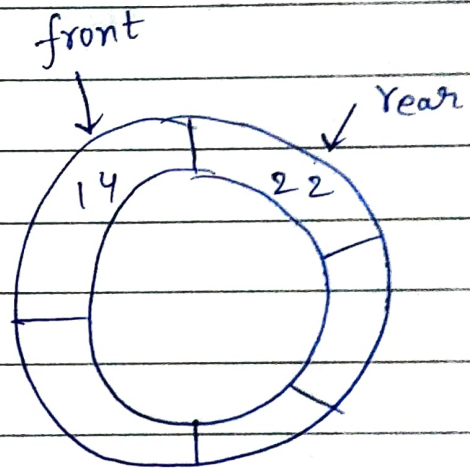 front
rear
14 22